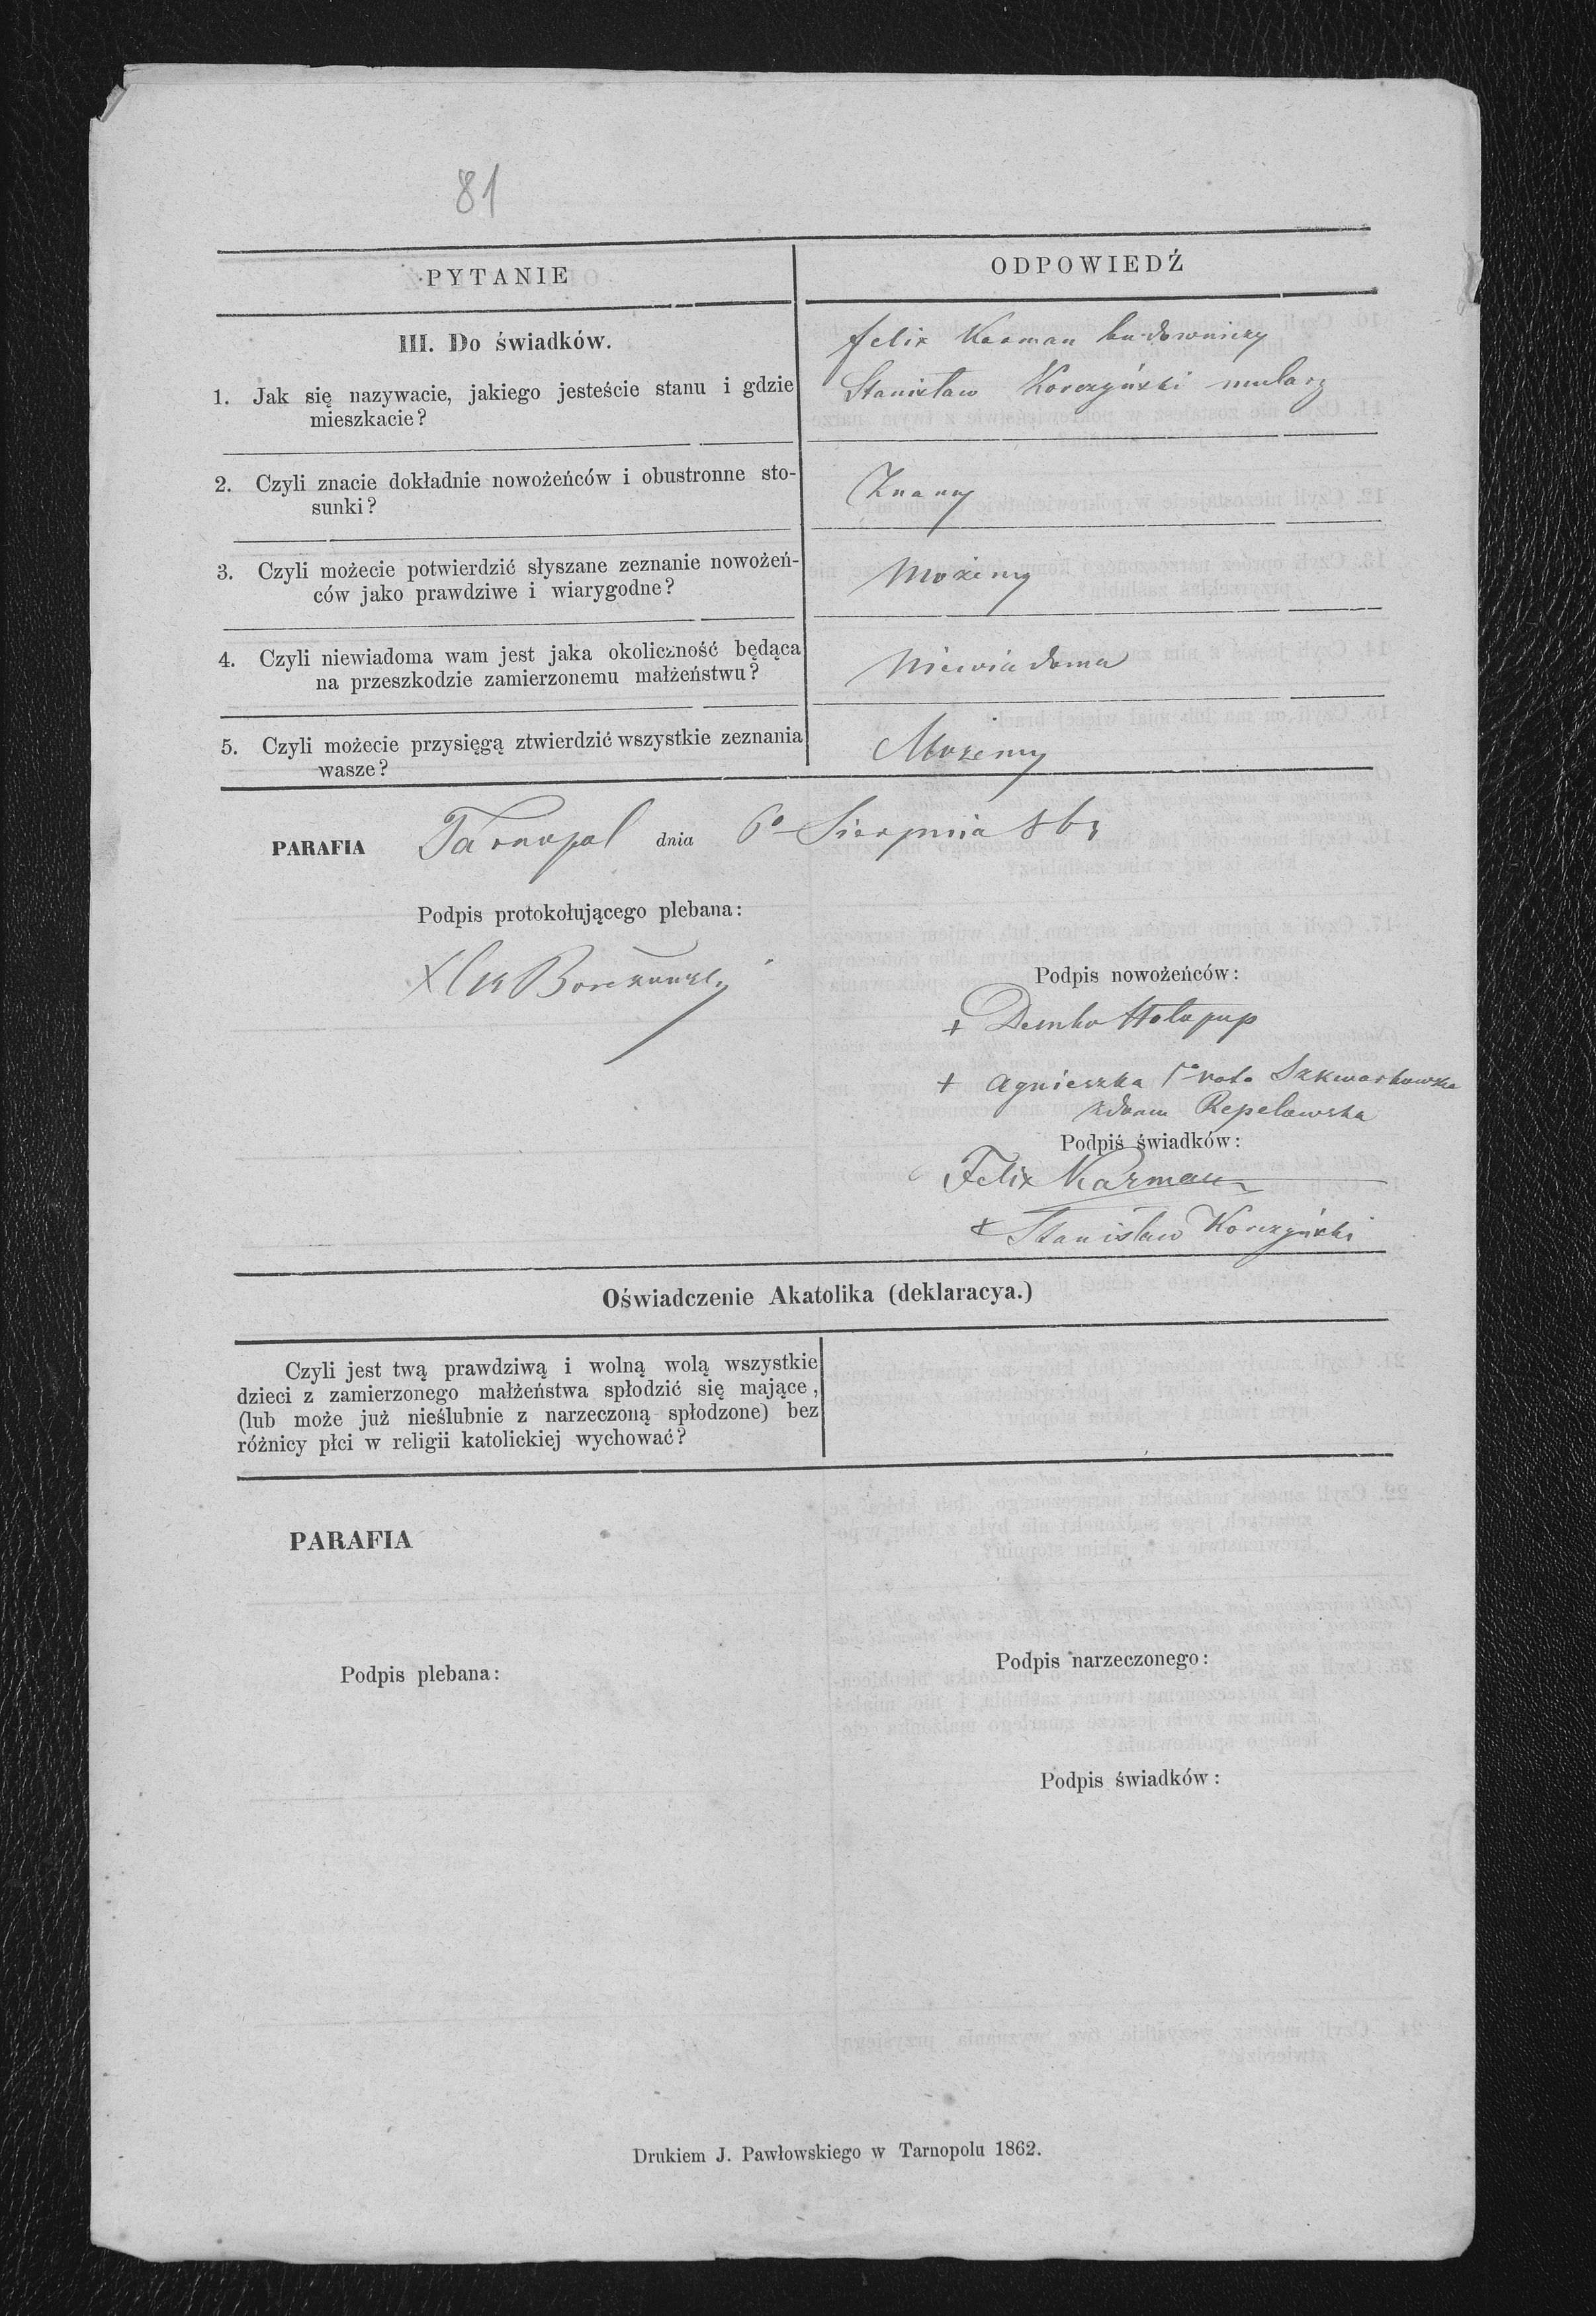 81
PYTANIE
ODPOWIEDŹ
III. Do świadków.
1. Jak się nazywacie, jakiego jesteście stanu i gdzie
mieszkacie?
Felix Karman budowniczy
Stanisław Korczyński mularz
2. Czyli znacie dokładnie nowożeńców i obustronne sto-
sunki?
Znamy
3. Czyli możecie potwierdzić słyszane zeznanie nowożeń-
ców jako prawdziwe i wiarygodne?
Możemy
4. Czyli niewiadoma wam jest jaka okoliczność będąca
na przeszkodzie zamierzonemu małżeństwu?
Niewiadoma
5. Czyli możecie przysięgą ztwierdzić wszystkie zeznania
wasze?
Możemy
PARAFIA Tarnopol dnia 6º Sierpnia
Podpis protokołującego plebana:
Podpis nowożeńców:
+ Demko Hołopup
+ Agnieszka 1º voto Szkwarkowska
zdomu Repelowska
Podpiś świadków:
Felix Karman
+ Stanisław Korczyński
Oświadczenie Akatolika (deklaracya.)
Czyli jest twą prawdziwą i wolną wolą wszystkie
dzieci z zamierzonego małżeństwa spłodzić się mające,
(lub może już nieślubnie z narzeczoną spłodzone) bez
różnicy płci w religii katolickiej wychować?
PARAFIA
Podpis plebana:
Podpis narzeczonego:
Podpis świadków:
Drukiem J. Pawłowskiego w Tarnopolu 1862.